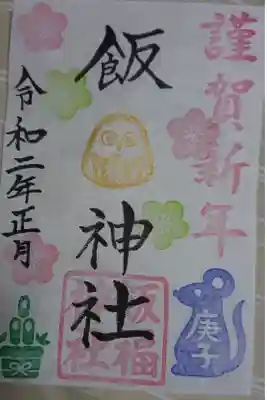 謹賀新年
飯
神社
令和二年正月
庚子
飯福
神社